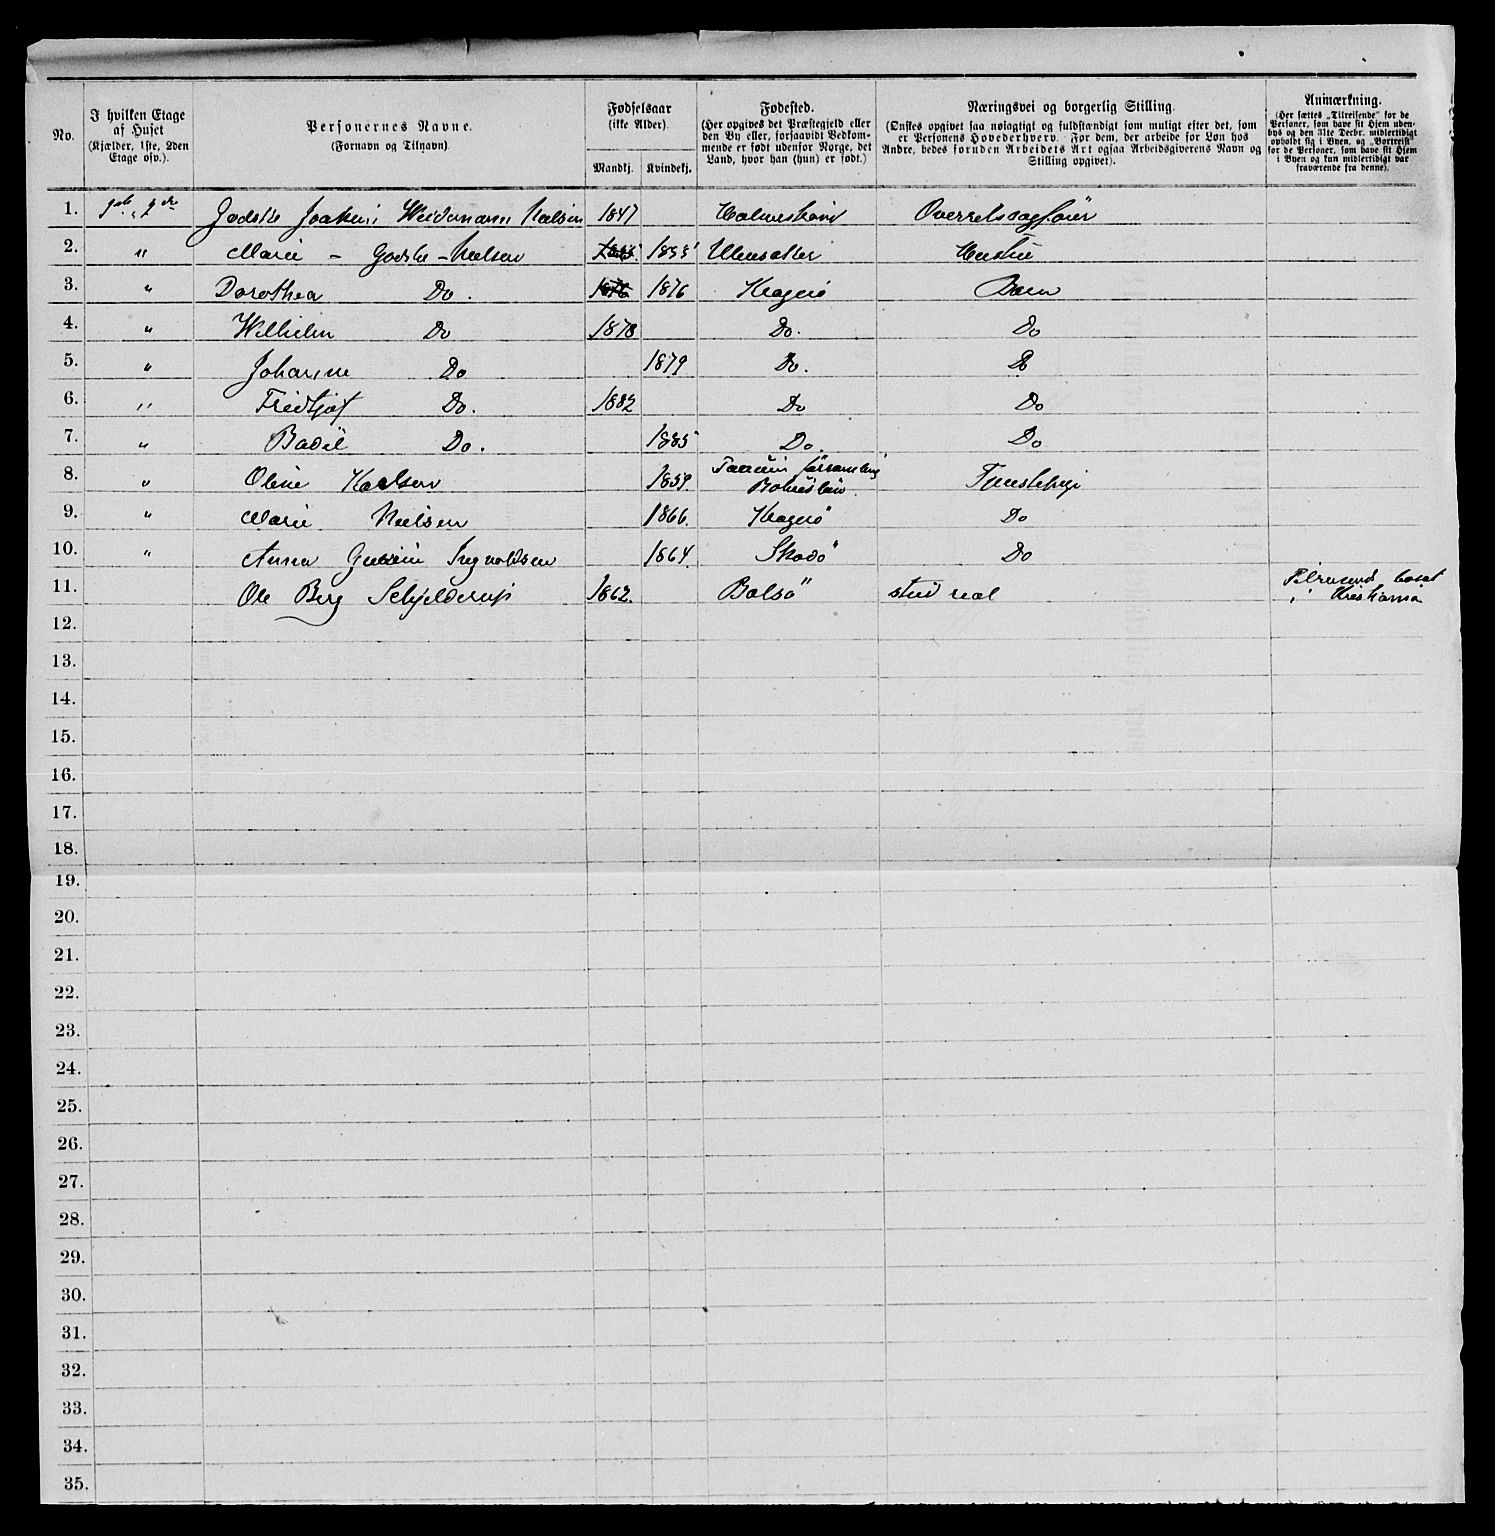 No.
I hvilken Etage
af Huset
(Kjælder, 1ste, 2den
Etage osv.).
Personernes Navne.
(Fornavn og Tilnavn).
Fødselsaar
(ikke Alder).
Mandkj. Kvindekj.
Fødested.
(Her opgives det Præstegjeld eller
den By eller, forsaavidt Vedkom-
mende er født udenfor Norge, det
Land, hvor han (hun) er født.)
Næringsvei og borgerlig Stilling.
(Ønskes opgivet saa nøiagtigt og fuldstændigt som muligt efter det, som
er Personens Hovederhverv. For dem, der arbeide for Løn hos
Andre, bedes foruden Arbeidets Art ogsaa Arbeidsgiverens Navn og
Stilling opgivet).
Anmærkning.
(Her sættes „Tilreisende" for de
Personer, som have sit Hjem uden-
bys og den 31te Decbr. midlertidigt
opholdt sig i Byen, og „Bortreist"
for de Personer, som have sit Hjem
i Byen og kun midlertidigt var
fraværende fra denne).
1. Godske Joakim Weidemann Nielsen 1847 Holmestrand Overretssagfører
2. " Marie - Godske-Nielsen 1855 Ullensaker Hustru
3. " Dorothea Do. 1876 Kragerø Barn
4. " Wilhelm Do 1878 Do. Do
5. " Johanne Do 1879 Do. Do
6. " Fridtjof Do. 1882 Do Do
7. " Bodil Do. 1885 Do. Do
8. " Oline Karlsen 1859. Bohuslän. Tjenestepige
9. " Marie Nielsen 1866. Kragerø Do
10. " Anna Ingvoldsen 1864. Skadø Do
11. Ole Berg Schjelderup 1862. Bolsø stud real Tilreisende bosat
i Kristiania
12.
13.
14.
15.
16.
17.
18.
19.
20.
21.
22.
23.
24.
25.
26.
27.
28.
29.
30.
31.
32.
33.
34.
35.